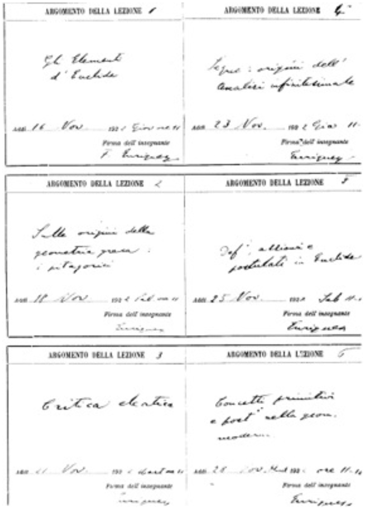 ARGOMENTO DELLA LEZIONE 1
Gli Elementi
d'Euclide
Addì 16 Nov. 192
Firma dell'insegnante
F. Enriques
ARGOMENTO DELLA LEZIONE 4
Segue: origini dell'
Analisi infinitesimale
Addì 23 Nov. 192
Firma dell'insegnante
Enriques
ARGOMENTO DELLA LEZIONE 2
Sulle origini della
geometria greca:
i pitagorici
Addì 18 Nov. 192
Firma dell'insegnante
Enriques
ARGOMENTO DELLA LEZIONE 5
postulati in Euclide
Addì 25 Nov. 192 Sab
Firma dell'insegnante
Enriques
ARGOMENTO DELLA LEZIONE 3
Critica eleatica
Addì 21 Nov. 192
Firma dell'insegnante
Enriques
ARGOMENTO DELLA LEZIONE 6
Concetti primitivi
e post nella geom.
moderna
Addì 28 Nov. 192 ore 11
Firma dell'insegnante
Enriques